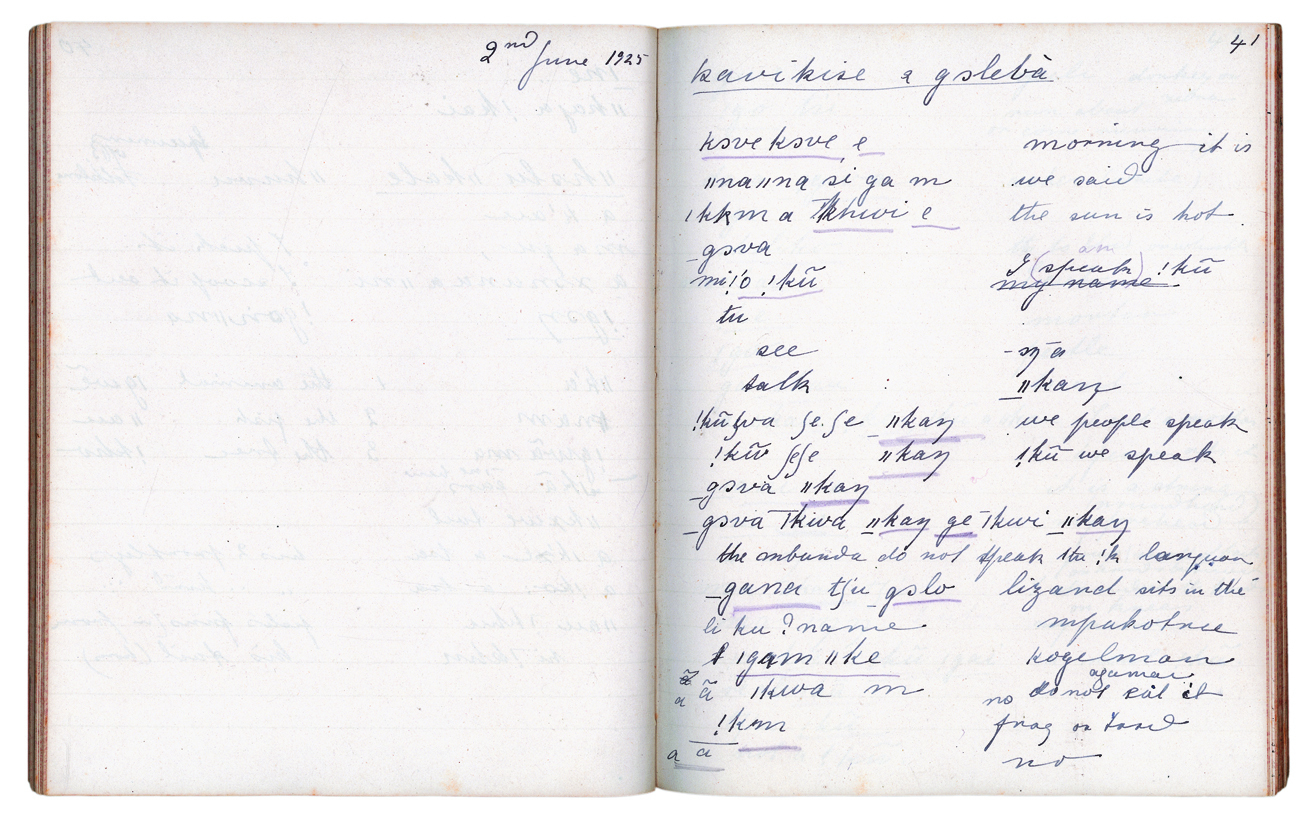 2nd June 1925
41
kavikise a gɔlebà
kɔve kɔve, e morning it is
ǁna ǁna si ga m we said
ǀkkm a ƚkhwi e the sun is hot
_gɔva
mi!o !kũ I (speak) am !kũ
my name
tu
see -ŋ a
talk ǁkaŋ
!kũʃva ʃe.ʃe _ǁkaŋ we people speak
!kũ ʃeʃe ǁkaŋ !kũ we speak
_gɔvà ǁkaŋ
_gɔvà ƚkwa ǁkaŋ ge ƚkwi ǁkaŋ
the mbunda do not speak the !k language
_gana tʃu _gɔlo lizard sits in the
li ku ? name mpukotree
ǀgam ǁke kogelman
agama
ã ã ǀkwa m no do not eat it
!km frog or toad
a a no